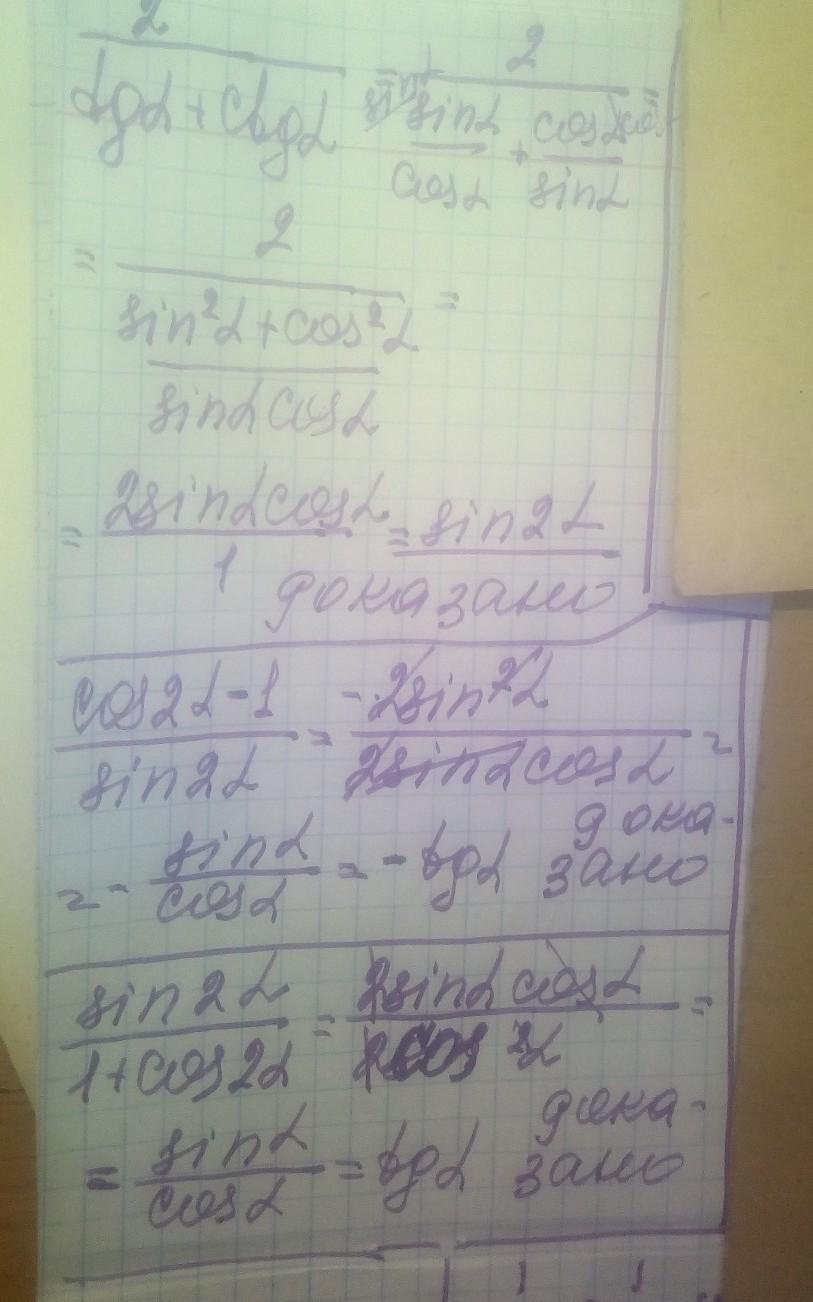 2 / (tgα + ctgα) = 2 / (sinα/cosα + cosα/sinα) =
= 2 / ((sin²α + cos²α) / (sinα cosα)) =
= 2sinα cosα / 1 = sin2α
доказано
(cos2α - 1) / sin2α = -2sin²α / (2sinα cosα) =
= - sinα / cosα = - tgα дока-
зано
sin2α / (1 + cos2α) = 2sinα cosα / (2cos²α) =
= sinα / cosα = tgα дока-
зано